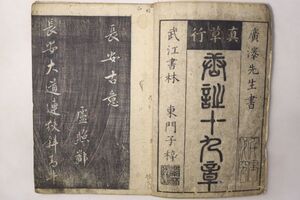 廣澤先生書
真草行
唐詩十九章
武江書林　東門子梓
長安古意
盧照鄰
長安大道連狹斜青牛